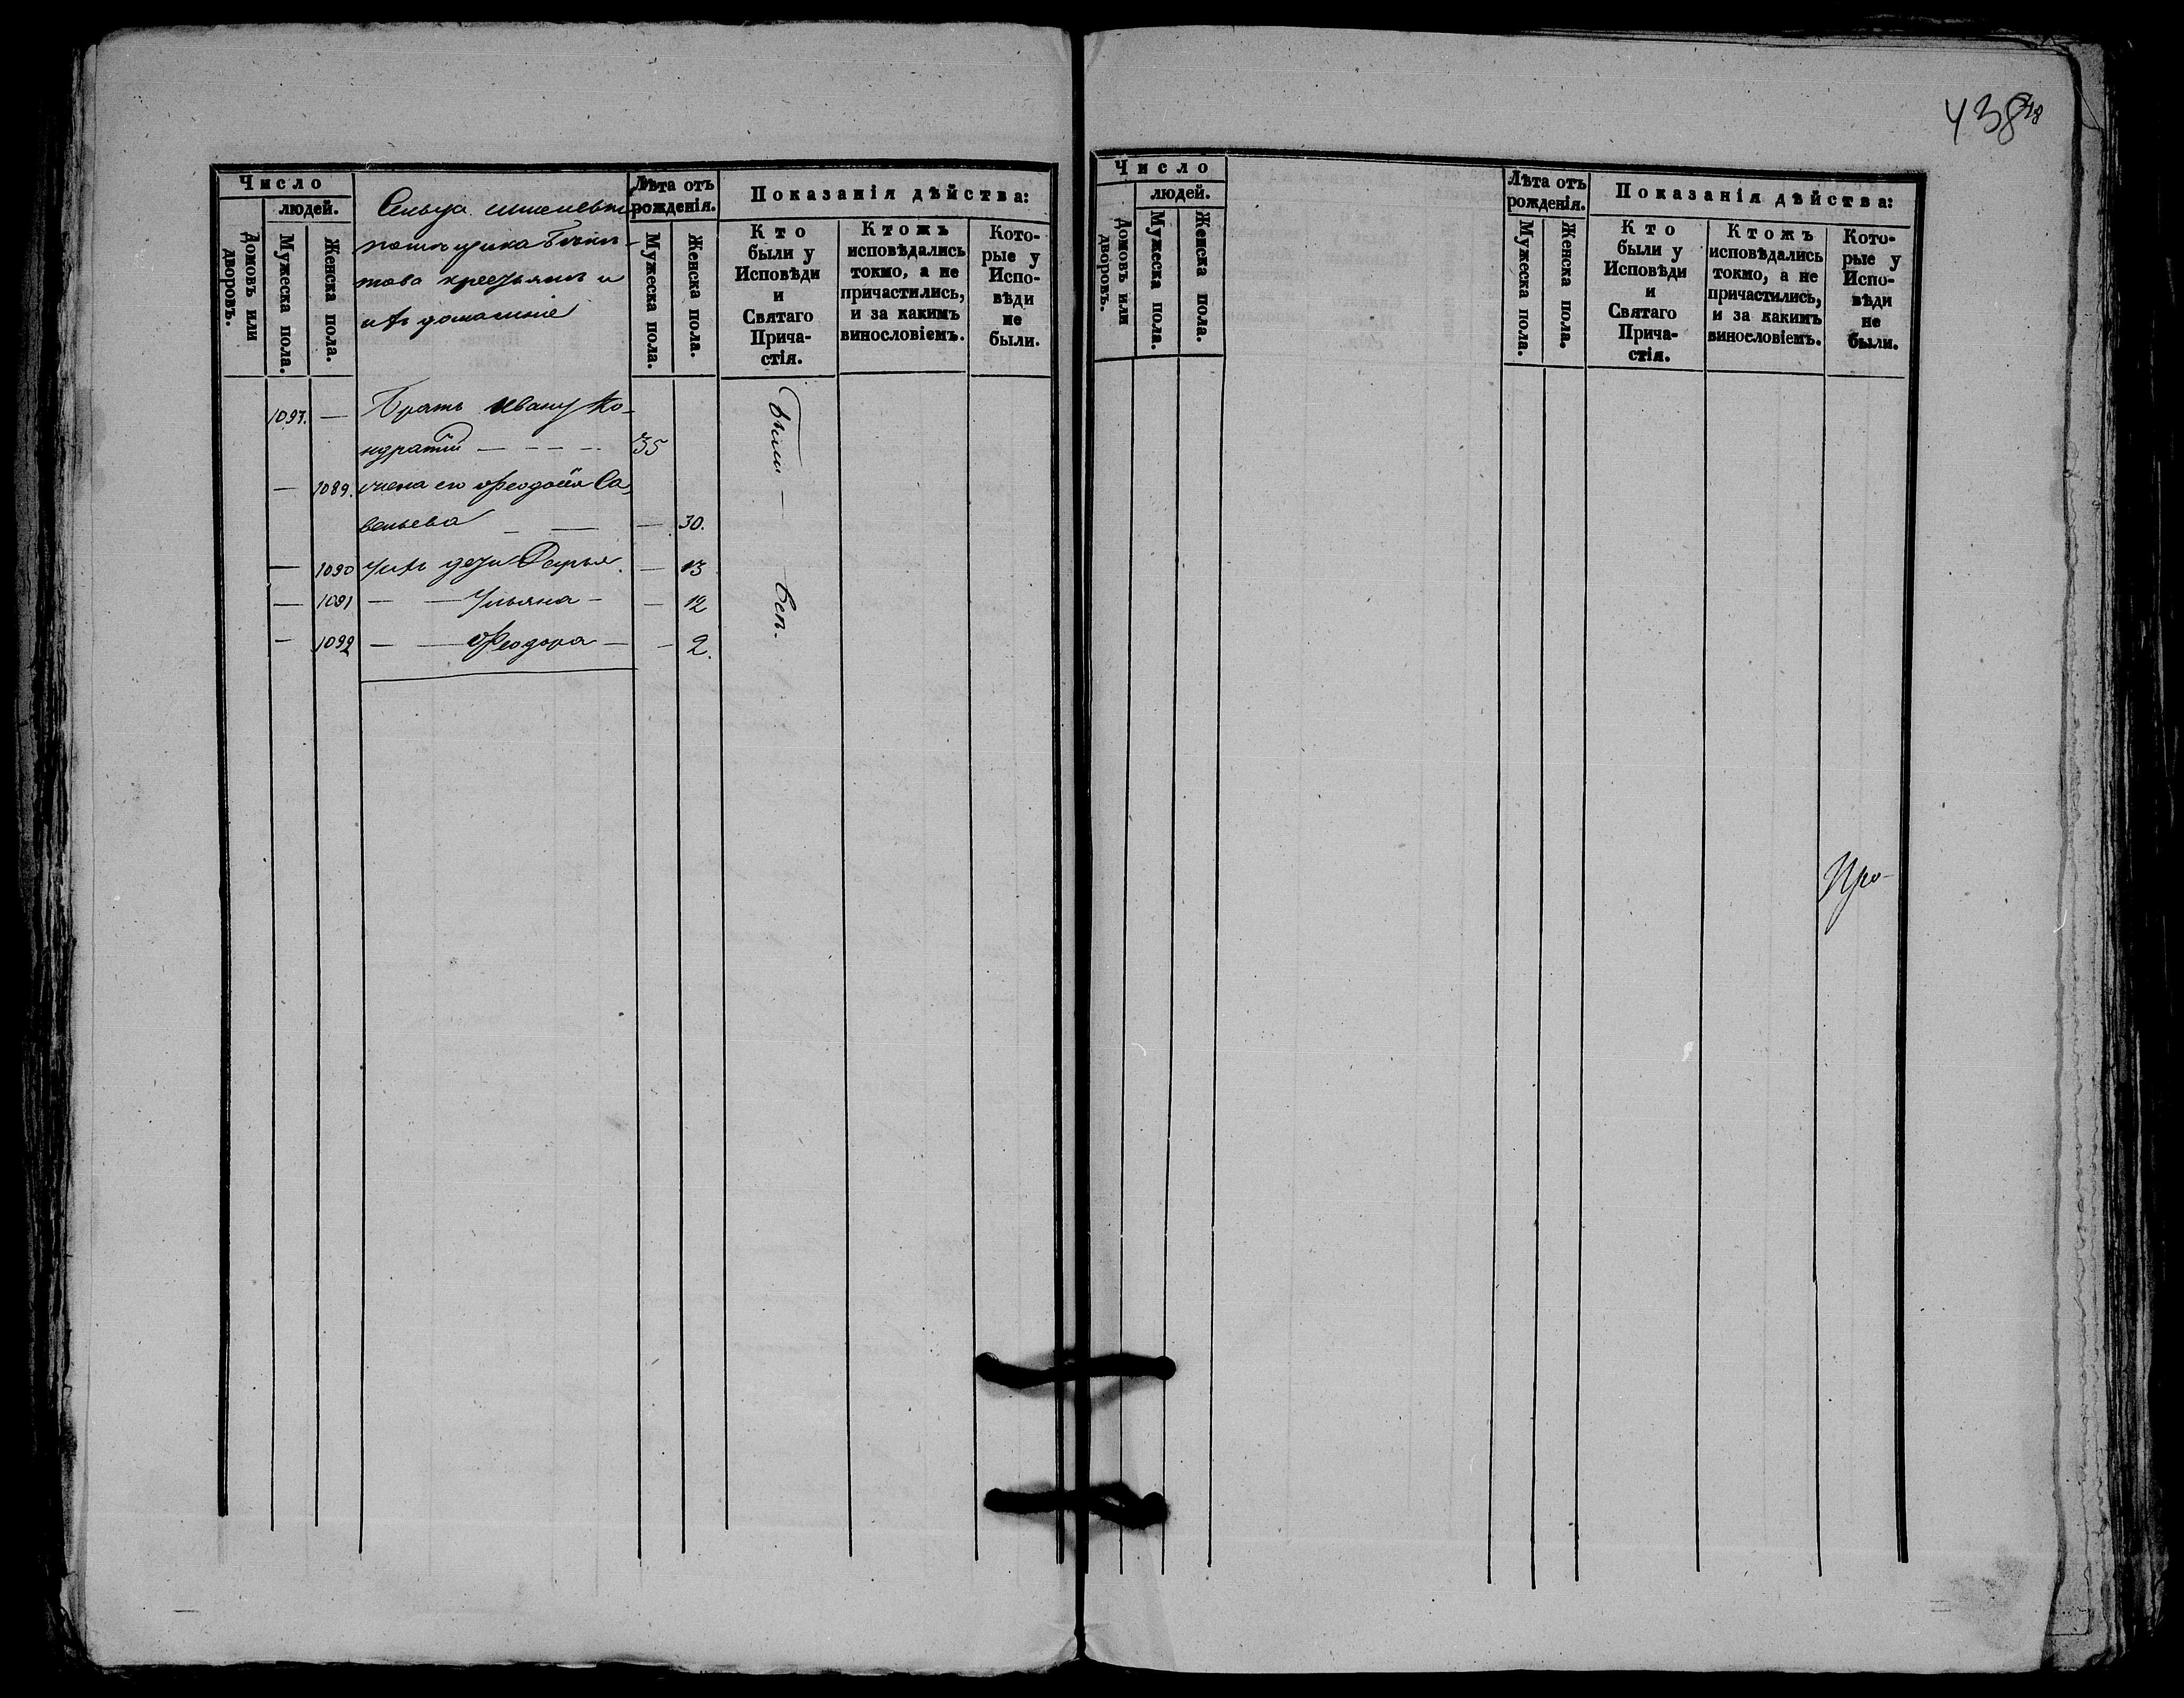 Число
людей.
Домовъ или дворовъ.
Мужеска пола.
Женска пола.
Сельца
помещика
това крестьяне и
ихъ домашніе
Лѣта отъ
рожденія.
Мужеска пола.
Женска пола.
Показанія дѣйства:
Кто
были у
Исповѣди
и
Святаго
Прича-
стія.
Ктожъ
исповѣдались
токмо, а не
причастились,
и за какимъ
винословіемъ.
Кото-
рые у
Испо-
вѣди
не
были.
1097. — Братъ Ивану Ко-
ндратій — — — — 35
— 1089. жена его Ѳеодосія Са-
вельева — — — 30.
— 1090 ихъ дети Дарья — 13
— 1091 — — Ульяна — — 12
— 1092 — — Ѳеодора — — 2.
Были —
438
48
Число
людей.
Домовъ или дворовъ.
Мужеска пола.
Женска пола.
Лѣта отъ
рожденія.
Мужеска пола.
Женска пола.
Показанія дѣйства:
Кто
были у
Исповѣди
и
Святаго
Прича-
стія.
Ктожъ
исповѣдались
токмо, а не
причастились,
и за какимъ
винословіемъ.
Кото-
рые у
Испо-
вѣди
не
были.
Про-